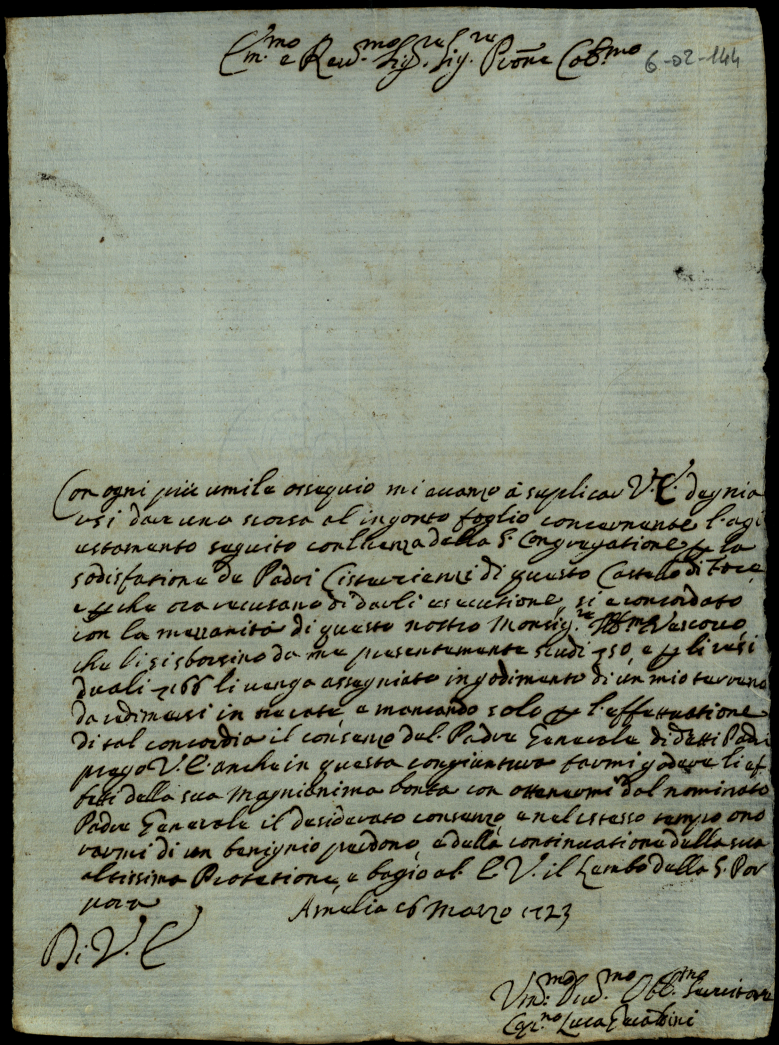 Em.mo e Reud.mo Sig.re Sig.re Prōne Col.mo 6-02-144
Con ogni più umile ossequio mi auanzo à suplicar V. E. degnia
rsi dare una scorsa al ingonto foglio concernente l'agi
ustamento seguito con licenza della S. Congregatione p la
sodisfatione de Padri Cisterciensi di questo Castello di Foce
e p che ora recusano di darli esecutione, si è concordato
con la mezzanità di questo nostro Monsig.re Vescouo
che li si sborsino da me presentemente scudi 50, e p li resi
duali 166 li uenga assegniato in godimento di un mio terreno
da redimersi in recate, e mancando solo p l'effettuatione
di tal concordia il consenzo del Padre Generale di detti Padri
prego V. E. anche in questa congiuntura farmi godere li ef
fetti della sua Magnianima bontà con ottenermi dal nominato
Padre Generale il desiderato consenzo, e nel istesso tempo ono
rarmi di un benignio perdono, e della continuatione della sua
altissima Protetione, e bagio al E. V. il Lembo della S. Por
pora
Amelia 16 Marzo 1723
Di V. E.
Vm.mo Diud.mo Obb.mo Seruitore
Luca Jacobini